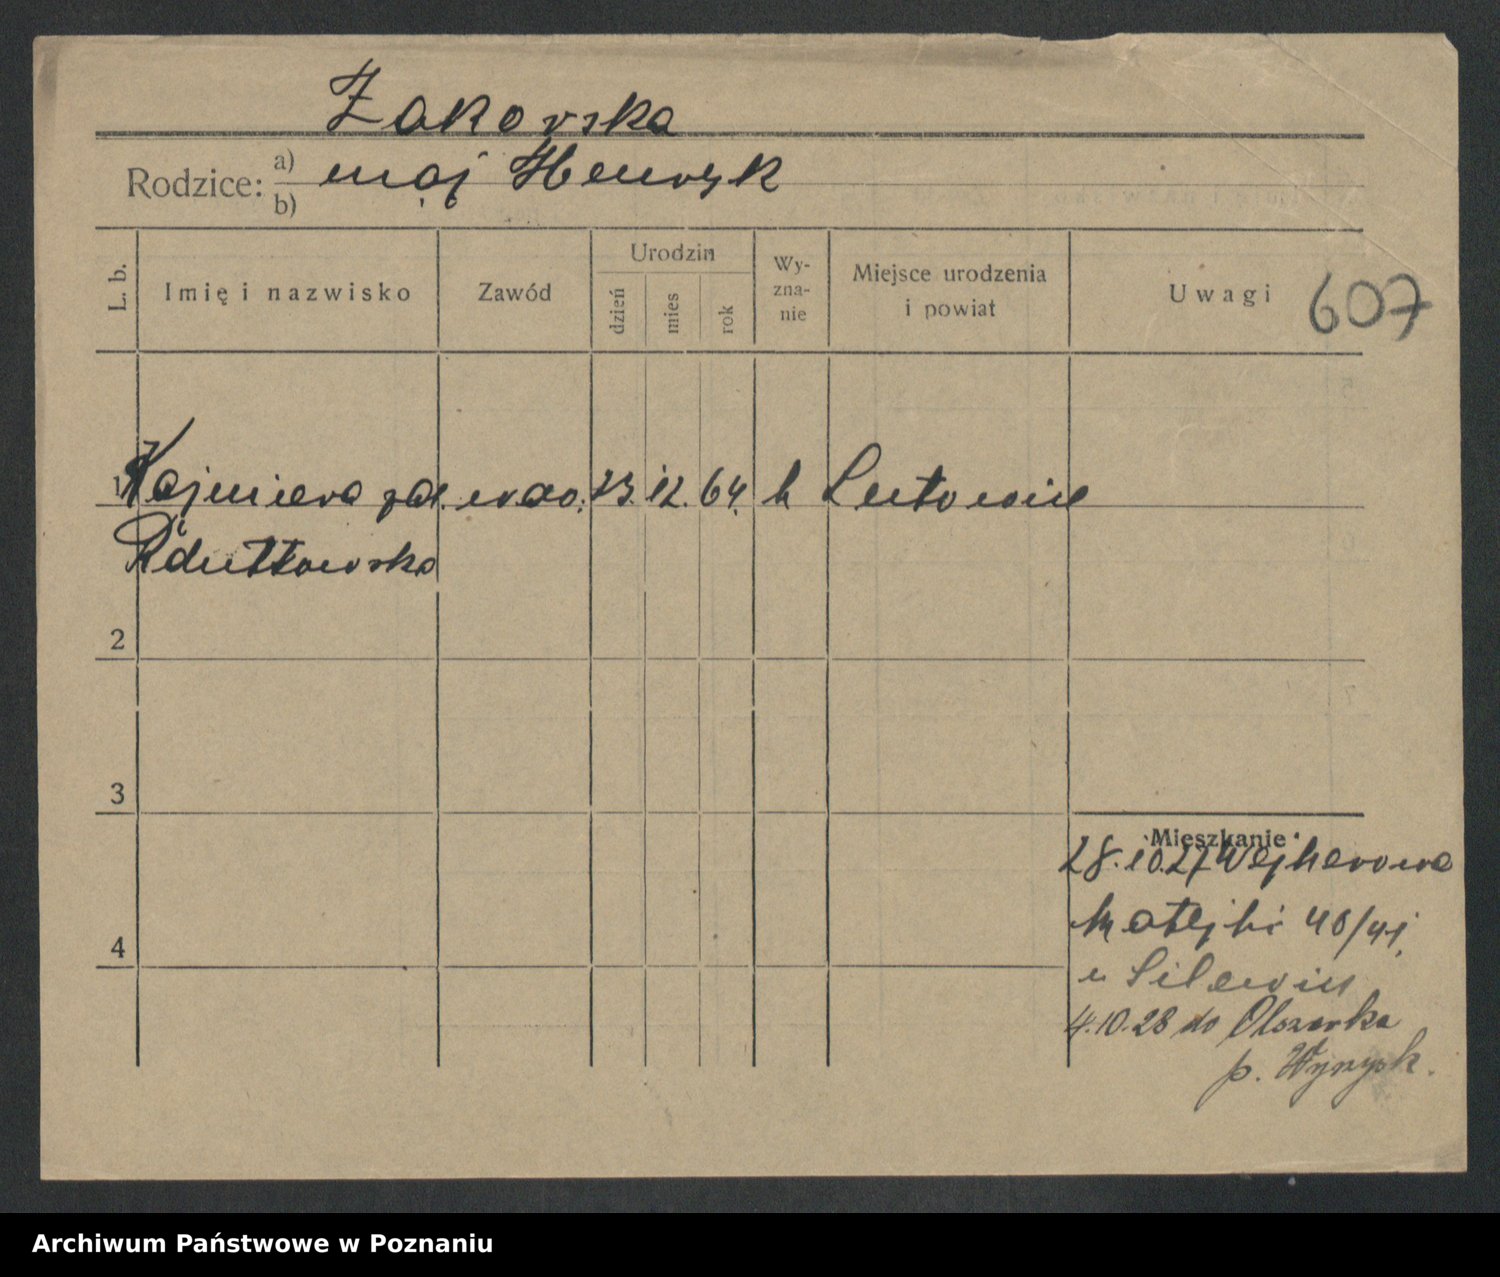 Żakowska
Rodzice: a) mąż Henryk
b)
L. b.
Imię i nazwisko
Zawód
Urodzin
dzień
mies
rok
Wy-
zna-
nie
Miejsce urodzenia
i powiat
Uwagi 607
1 Kaźmiera zd. wdo. 23. 12. 64. k
2
3
4
Mieszkanie
28.10.27 Wejherowa
Matejki 40/41
4.10.28 do Olszewka
p. Wyrzysk.
Archiwum Państwowe w Poznaniu